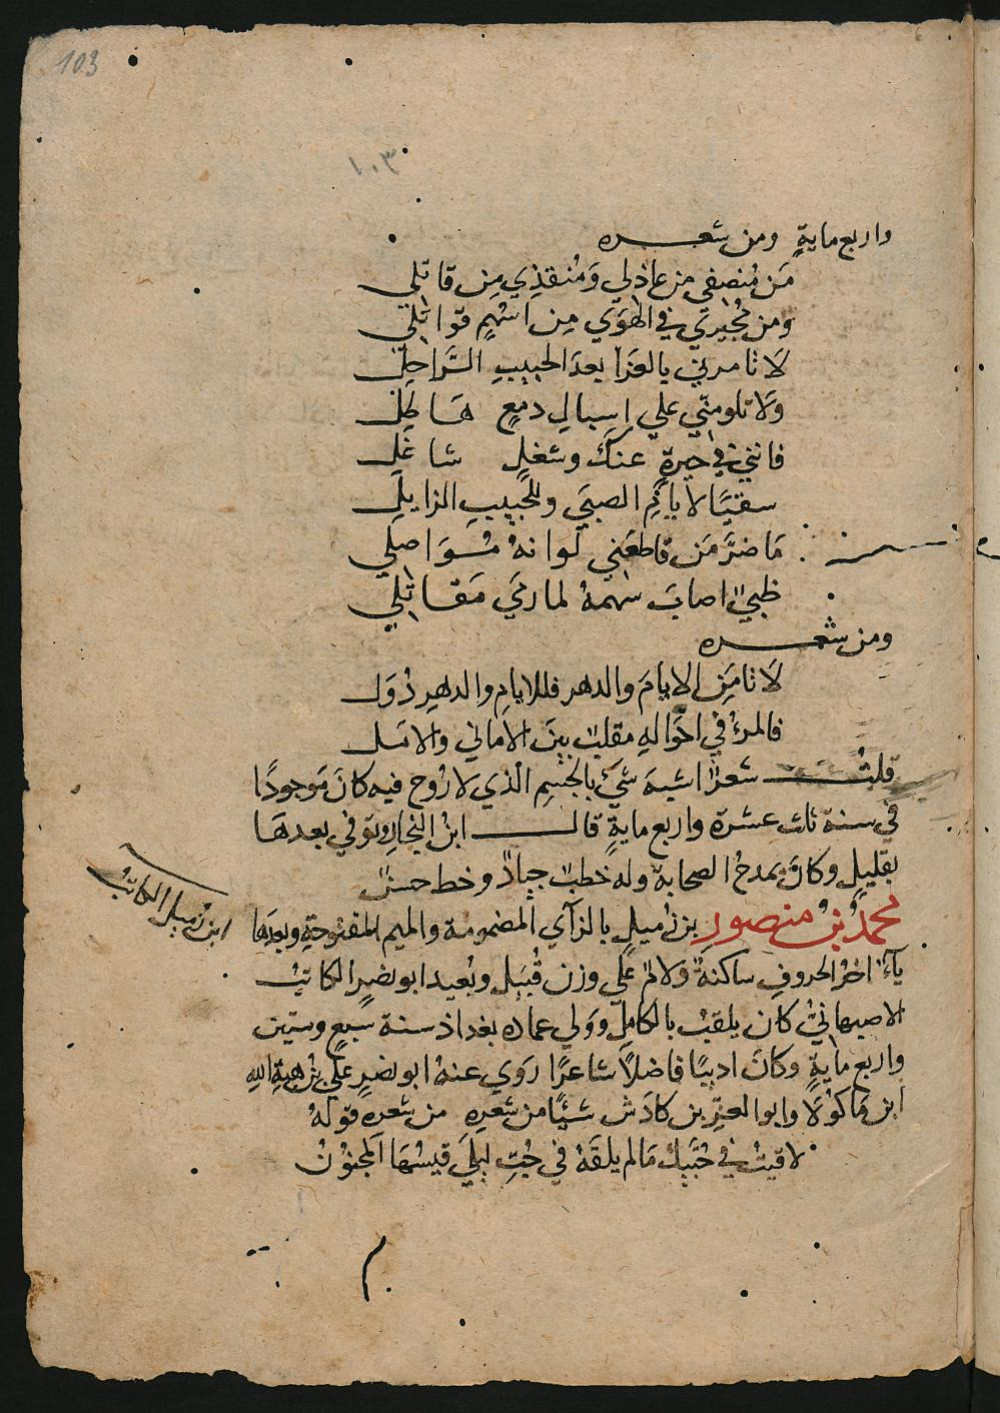 103
١٠٣
واربع ماية ومن شعره
مَن مُنصِفي من عاذلي وَمُنقذِي مِن قاتلي
ومن مُجيري في الهَوَي مِن اسْهُمٍ قواتلي
لَا تامرني بالعَزا بعدَ الحبيبِ الرَّاحِلِ
ولَا تلومنّي علي اِسبالِ دمعٍ هَاطِلِ
فانني في حيرةٍ عنكَ وشغلٍ شاغلِ
سقيًا لايامِ الصبَي وللحَبيبِ الزايلِ
مَا ضرَّ مَن قاطعَني لوانهُ مُوَاصلي
ظبيٌ اصابَ سهمهُ لما رمَي مَقاتلي
ومن شعره
لَا تامَنِ الايامَ والدهر فللايامِ والدهرِ دُوَل
فالمرءُ في احوالهِ مقلبٌ بينَ الاماني والامل
قلتُ شعرٌ اشبهَ شيءٍ بالجسمِ الذي لا رُوح فيه كانَ مَوجودًا
في سنة ثلث عشرة واربع مايةٍ قال ابنُ النجارِ وتوفي بعدهَا
بقليلٍ وكانَ يمدحُ الصحابة وله خطبٌ جيادٌ وخط حسنٌ
محمدُ بنُ منصورِ بن زُميلٍ بالزآي المضمومة والميم المفتوحةِ وبعدَها
ياءٌ اخرُ الحروفِ ساكنةٌ ولامٌ عَلَى وزن قُبَيل وبُعيد ابو نصرٍ الكاتبُ
الاصبهانيُّ كان يلقبُ بالكاملِ ووَلي عماره بغداذ سنة سَبعٍ وستين
واربع مايةٍ وكانَ اديبًا فاضلًا شاعرًا روَي عنهُ ابو نصرٍ عليُّ بنُ هبةِ اللهِ
ابن مَاكولَا وابو العزِّ بن كادَش شيًا من شعرِهِ من شعرِهِ قولهُ
لاقيتُ في حُبَيك مَا لم يلقَهُ في حُبِّ ليلَى قيسُهَا المجنُونُ
ابن زُميل الكاتب